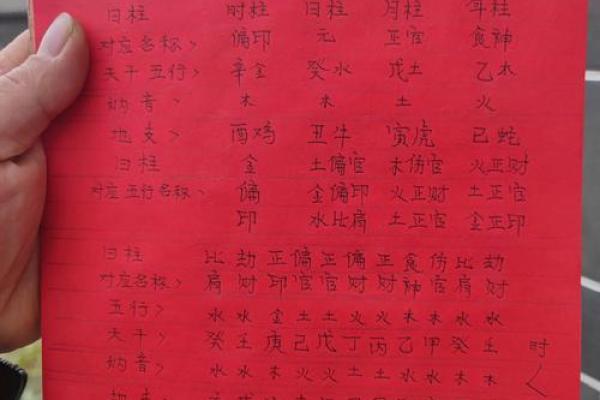 日柱 时柱 日柱 月柱 年柱
对应名称> 偏印 元 正官 食神
天干五行> 辛金 癸水 戊土 乙木
纳音> 木 木 土 火
地支> 酉鸡 丑牛 寅虎 已蛇
日柱 金 土偏官 木伤官 火正财
对应五行名称> 偏 金偏印 火正财 土正官
印 水比肩 土正官 金正印
日柱 比 劫 正 偏 正 偏 正 食 伤 比 劫
对应名称> 肩 财 印 官 官 财 财 神 官 肩 财
五行> 水 水 金 土 土 火 火 木 木 水 水
天干> 癸 壬 庚 己 戊 丁 丙 乙 甲 癸 壬 时
纳音> 水 水 木 火 火 土 土 水 水 木 木